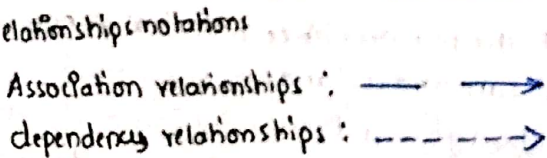 elationships notations
Association relationships :
dependency relationships :